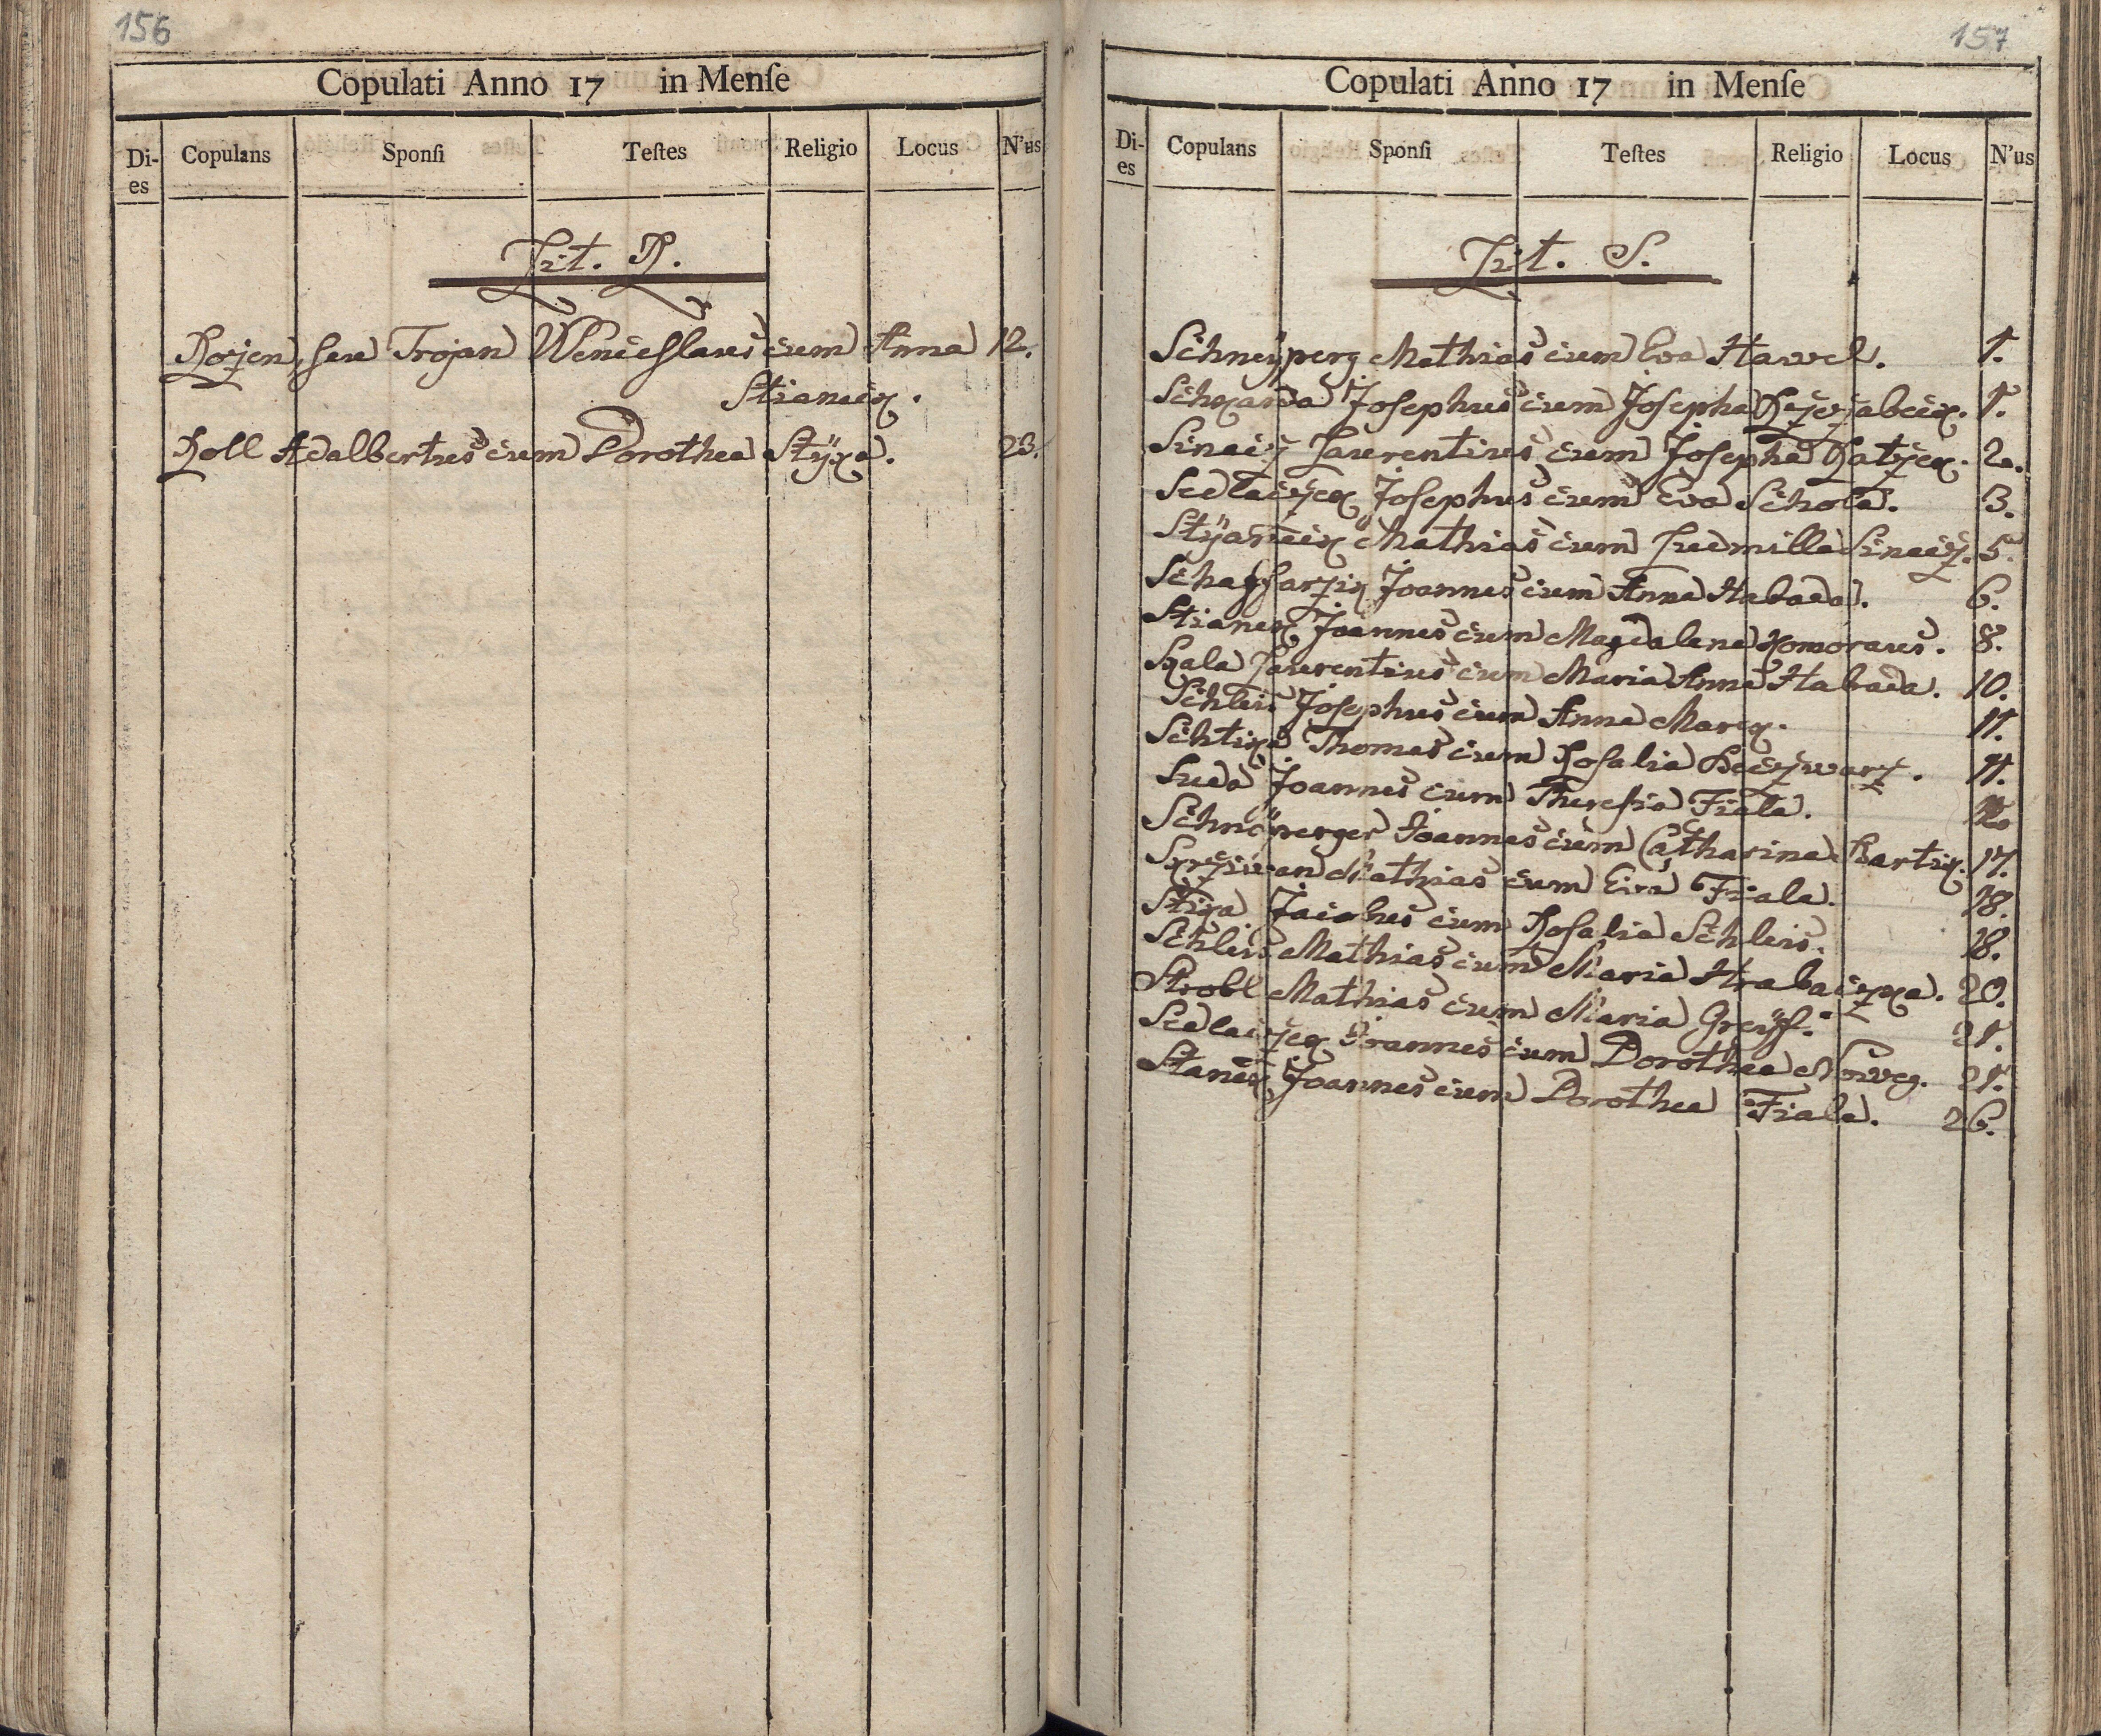 156
Copulati Anno 17 in Menſe
Di-es Copulans Sponſi Teſtes Religio Locus N'us
Lit. R.
Rozen, seu Trojan Wenceslaus cum Anna 12.
Stianick.
Roll Adalbertus cum Dorothea Stÿka. 23.
157
Copulati Anno 17 in Menſe
Di-es Copulans Sponſi Teſtes Religio Locus N'us
Lit. S.
Schneÿperg Mathias cum Eva Hawel. 1.
Josephus cum Josepha 1.
Laurentius cum Josepha 2.
Sedlaczek Josephus cum Eva Schola. 3.
Mathias cum Ludmilla 5.
Joannes cum Anna Habada. 6.
Stianek Joannes cum Magdalena Komoraus. 8.
Skala Laurentius cum Maria Anna Habada. 10.
Schleis Josephus cum Anna Marek. 11.
Schtika Thomas cum Rosalia 11.
Suda Joannes cum Theresia Fiala.
Joannes cum Catharina Bartik. 17.
Skrziwan Mathias cum Eva Fiala. 18.
Stika Jacobus cum Rosalia Schleis. 18.
Schleis Mathias cum Maria Hrabaczka. 20.
Strobl Mathias cum Maria Greÿff. 21.
Sedlaczek Joannes cum Dorothea 21.
Stanek Joannes cum Dorothea Fiala. 26.